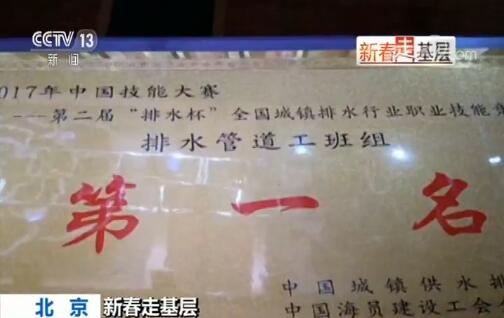 CCTV 13
新闻
新春走基层
017年中国技能大赛
---第二届“排水杯”全国城镇排水行业职业技能竞
排水管道工班组
第一名
中国城镇供水排
中国海员建设工会
北京 新春走基层